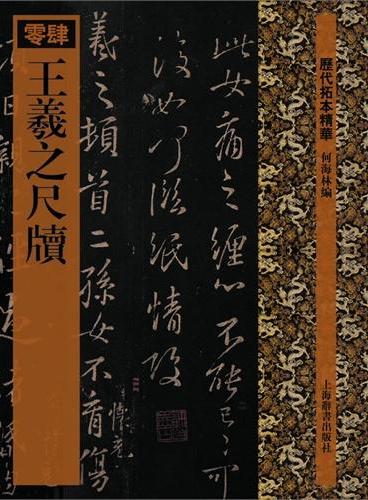 零肆
王羲之尺牘
歷代拓本精華
何海林編
上海辭書出版社
痛之纏心不能已已可
復如何臨紙情酸
羲之頓首二孫女不育傷
悼